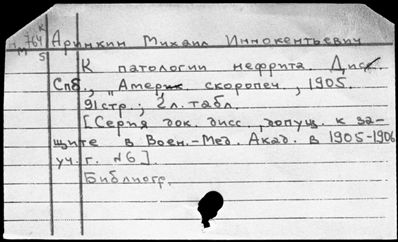 Аринкин Михаил Иннокентьевич
К патологии нефрита. Дис.
Спб., "Америк. скоропеч., 1905.
91 стр.; 2 л. табл.
[Серия док. дисс., допущ. к за-
щите в Воен.-Мед. Акад. в 1905-1906
уч. г. №6].
Библиогр.